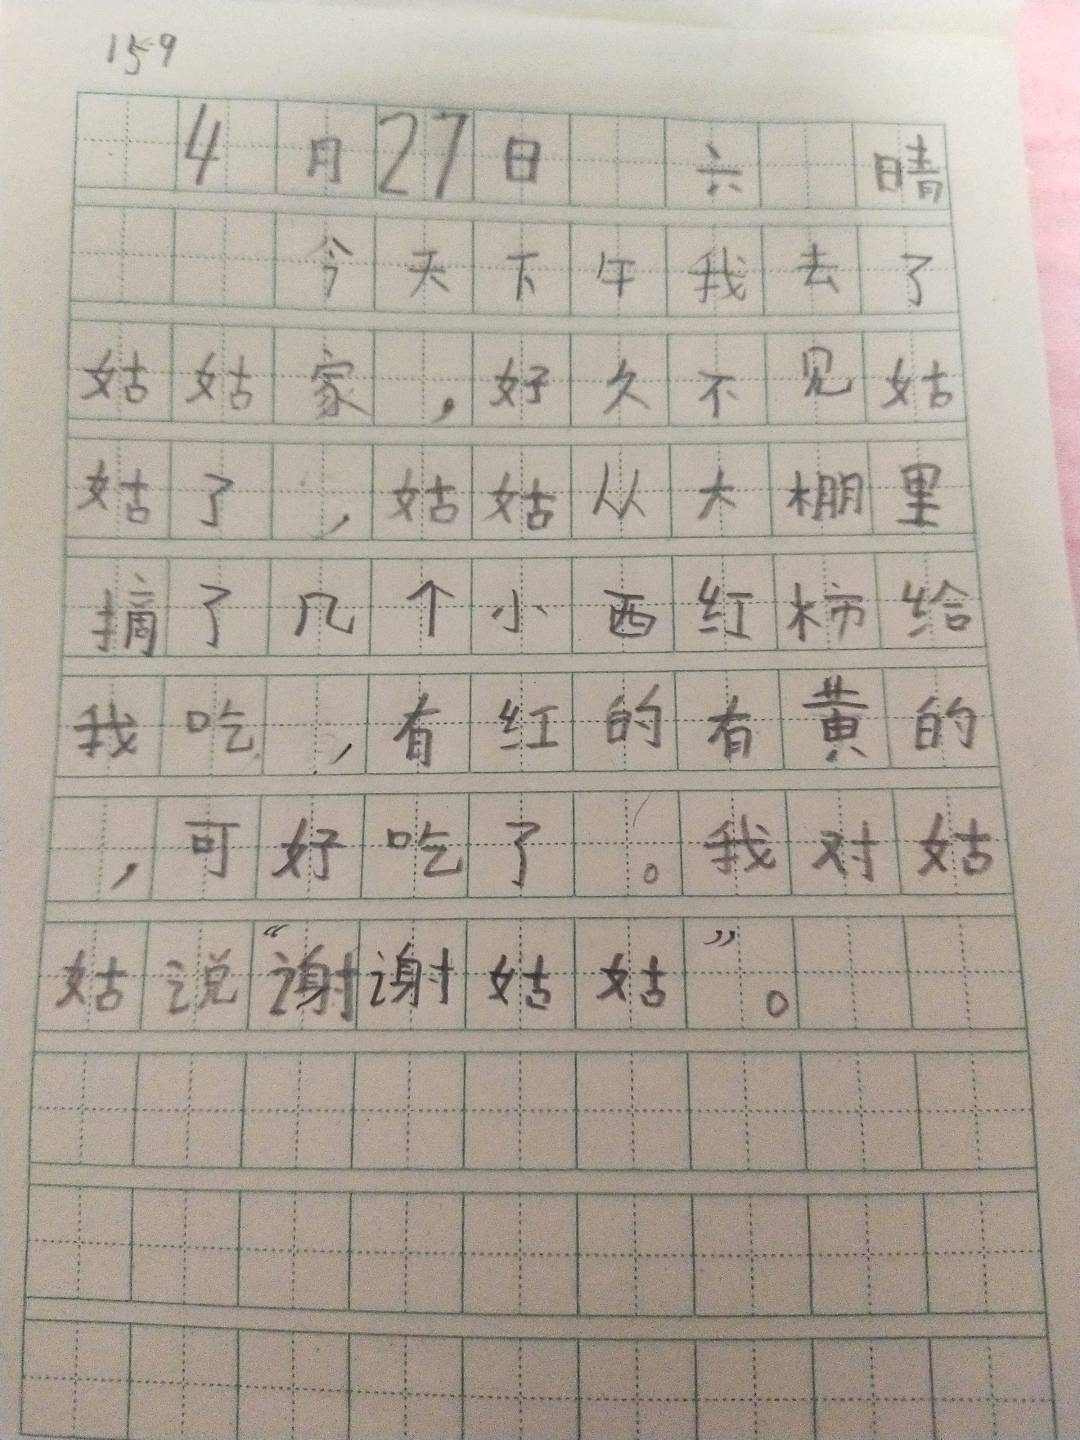 159
4月27日 六 晴
今天下午我去了
姑姑家，好久不见姑
姑了，姑姑从大棚里
摘了几个小西红柿给
我吃，有红的有黄的
，可好吃了。我对姑
姑说“谢谢姑姑”。